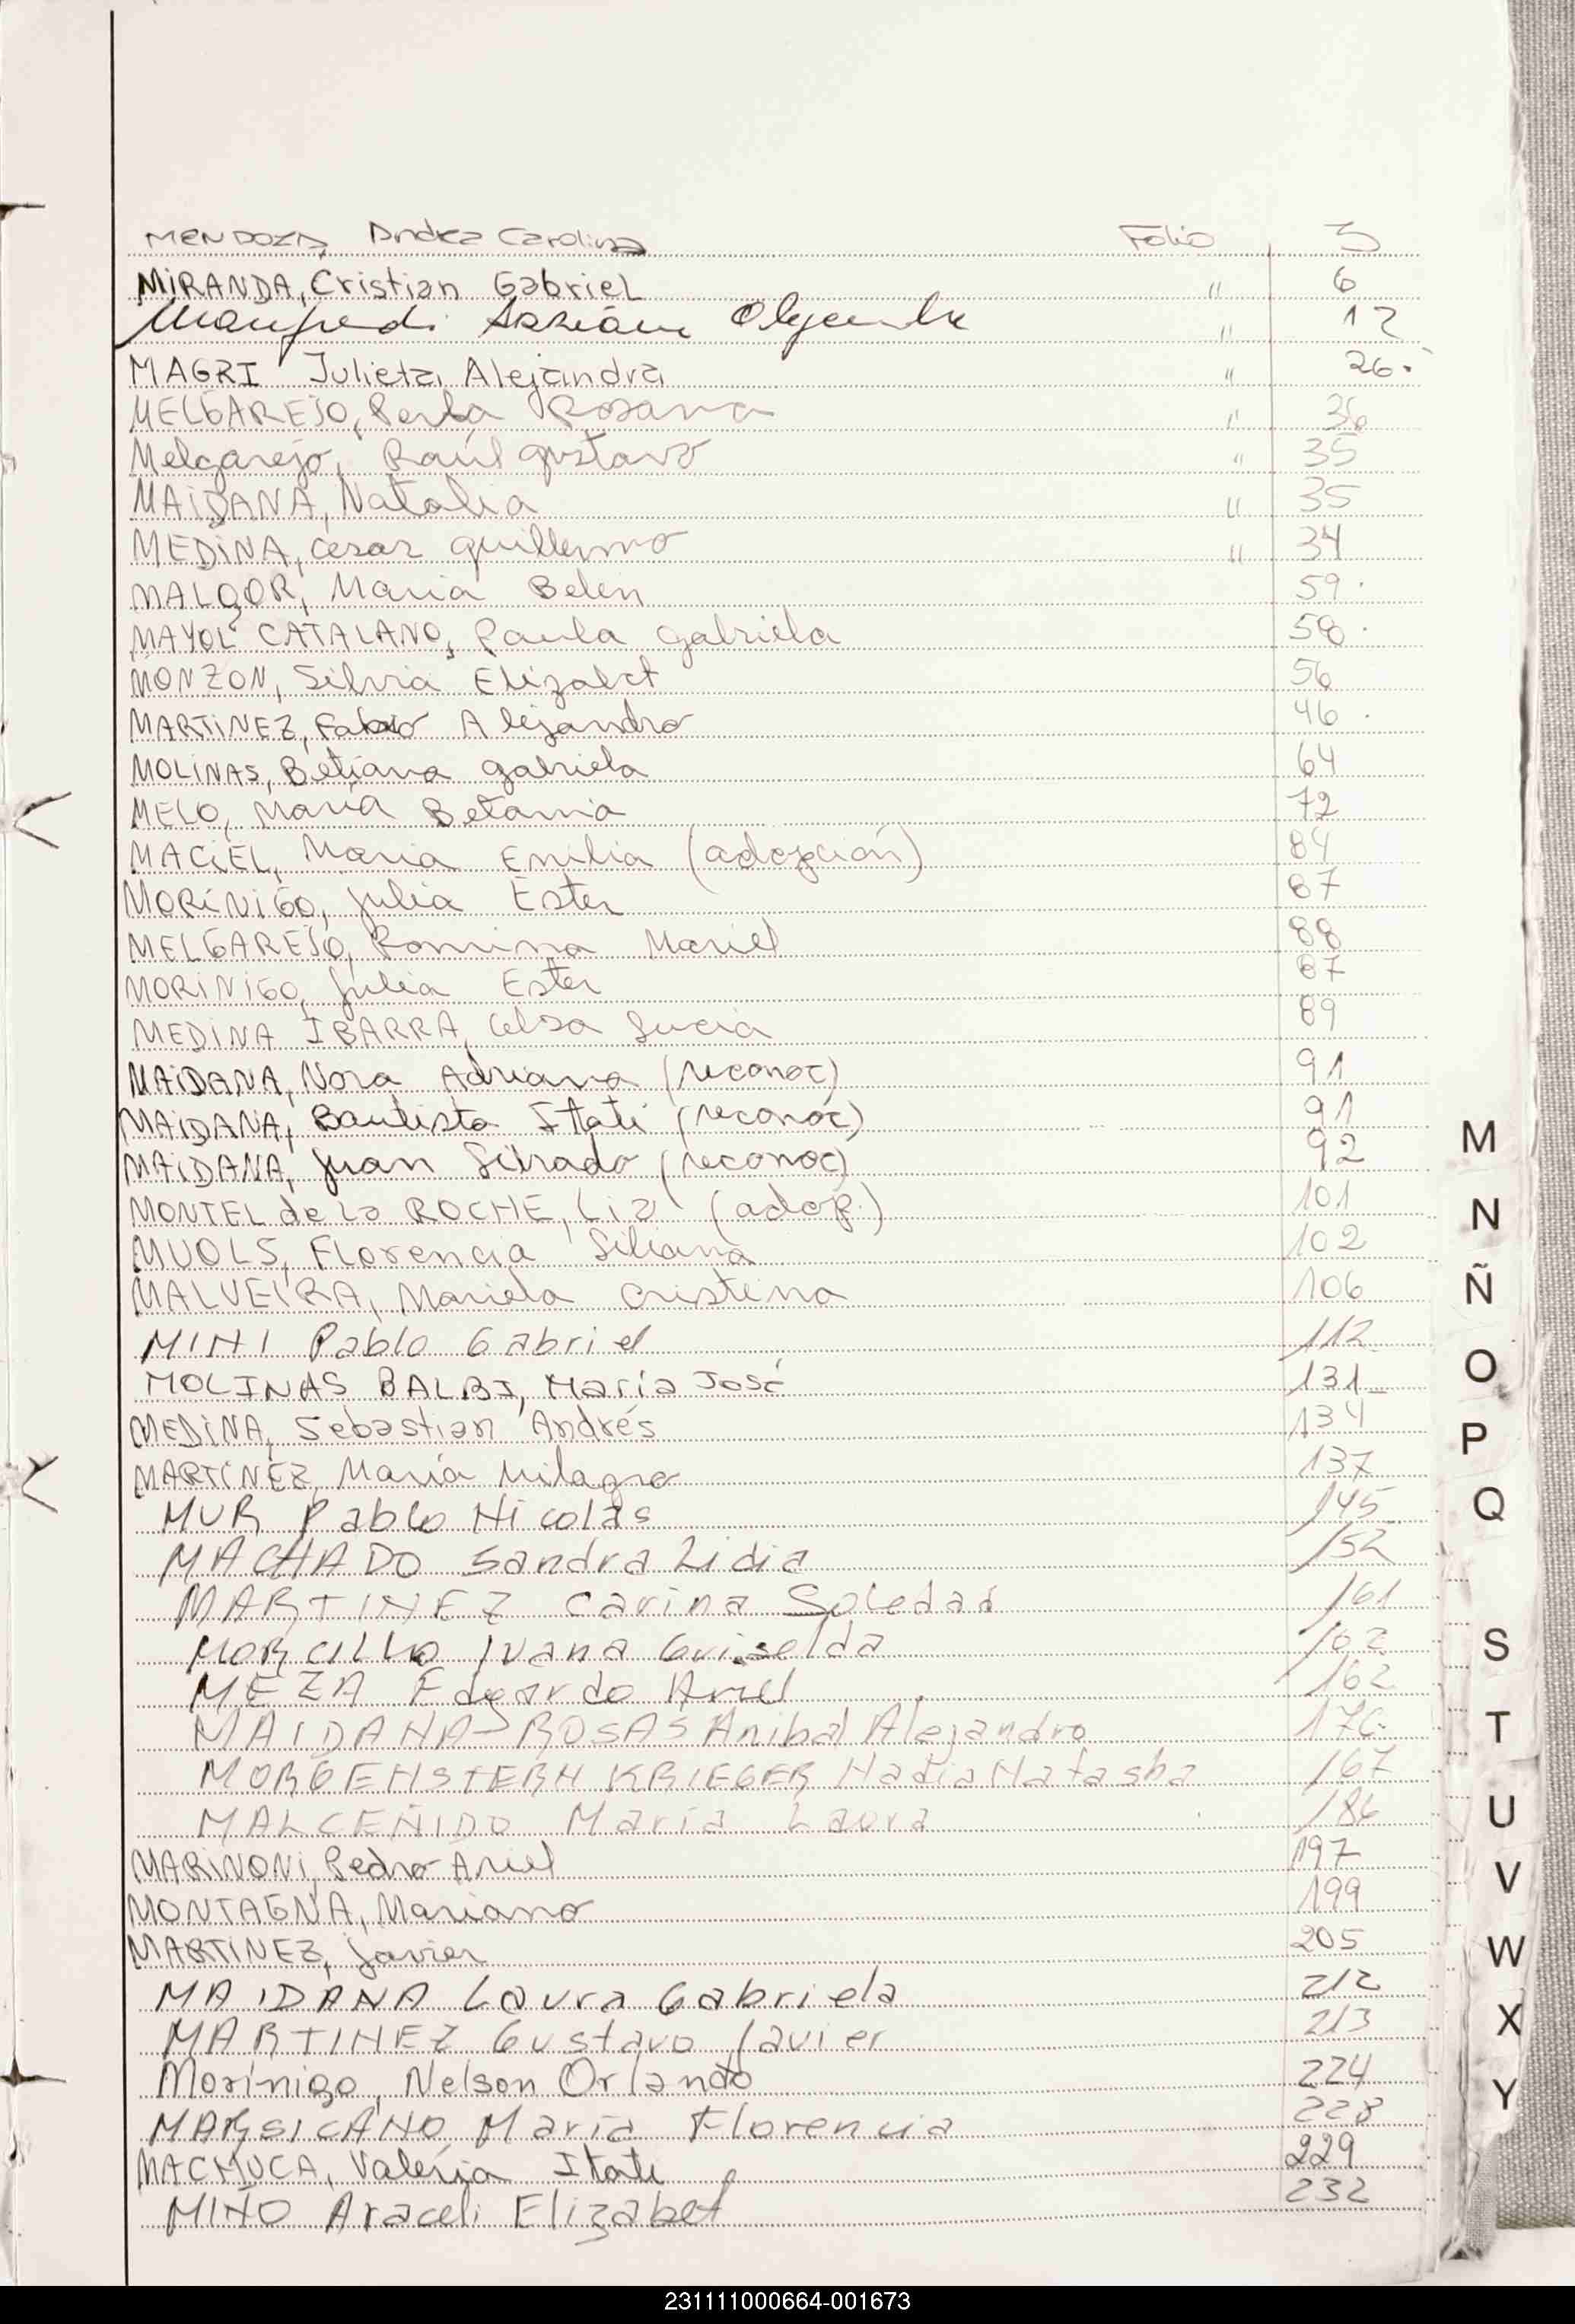 MENDOZA, Andrea Carolina Folio 3
MIRANDA, Cristian Gabriel " 6
Manfredi Adrián " 12
MAGRI Julieta Alejandra " 26.
MELGAREJO, Perla Rosana " 36
Melgarejo, Raúl gustavo " 35
MAIDANA, Natalia " 35
MEDINA, cesar guillermo " 34
MALGOR, Maria Belen 59.
MAYOL CATALANO, Paula gabriela 58.
MONZON, Silvia Elizabet 56
MARTINEZ, Fabio Alejandro 46.
MOLINAS, Betiana gabriela 64
MELO, María Betania 72
MACIEL, Maria Emilia (adopción) 84
MORINIGO, Julia Ester 87
MELGAREJO, Romina Mariel 88
MORINIGO, Julia Ester 87
MEDINA IBARRA, Celsa Lucia 89
MAIDANA, Nora Adriana (reconoc) 91
MAIDANA, Bautista Itatí (reconoc) 91
MAIDANA, Juan (reconoc) 92
MONTEL de la ROCHE, Lia (adop.) 101
MUOLS, Florencia Silvana 102
MALVEIRA, Mariela Cristina 106
MINI Pablo Gabriel 112
MOLINAS BALBI, María José 131
MEDINA, Sebastian Andrés 134
MARTINEZ, María Milagro 137
MUR Pablo Nicolás 145
MACHADO Sandra Lidia 152
MARTINEZ Carina Soledad 161
MORCILLO Ivana Griselda 162
MEZA Edgardo Ariel 162
MAIDANA ROSAS Anibal Alejandro 176.
MORGENSTERN KRIEGER Nadia Natasha 167
MALCEÑIDO María Laura 186
MARINONI, Pedro Ariel 197
MONTAGNA, Mariano 199
MARTINEZ, Javier 205
MAIDANA Laura Gabriela 212
MARTINEZ Gustavo Javier 213
Morinigo, Nelson Orlando 224
MARSICANO María Florencia 228
MACHUCA, Valeria Itati 229
MIÑO Araceli Elizabet 232
M
N
Ñ
O
P
Q
S
T
U
V
W
X
Y
231111000664-001673